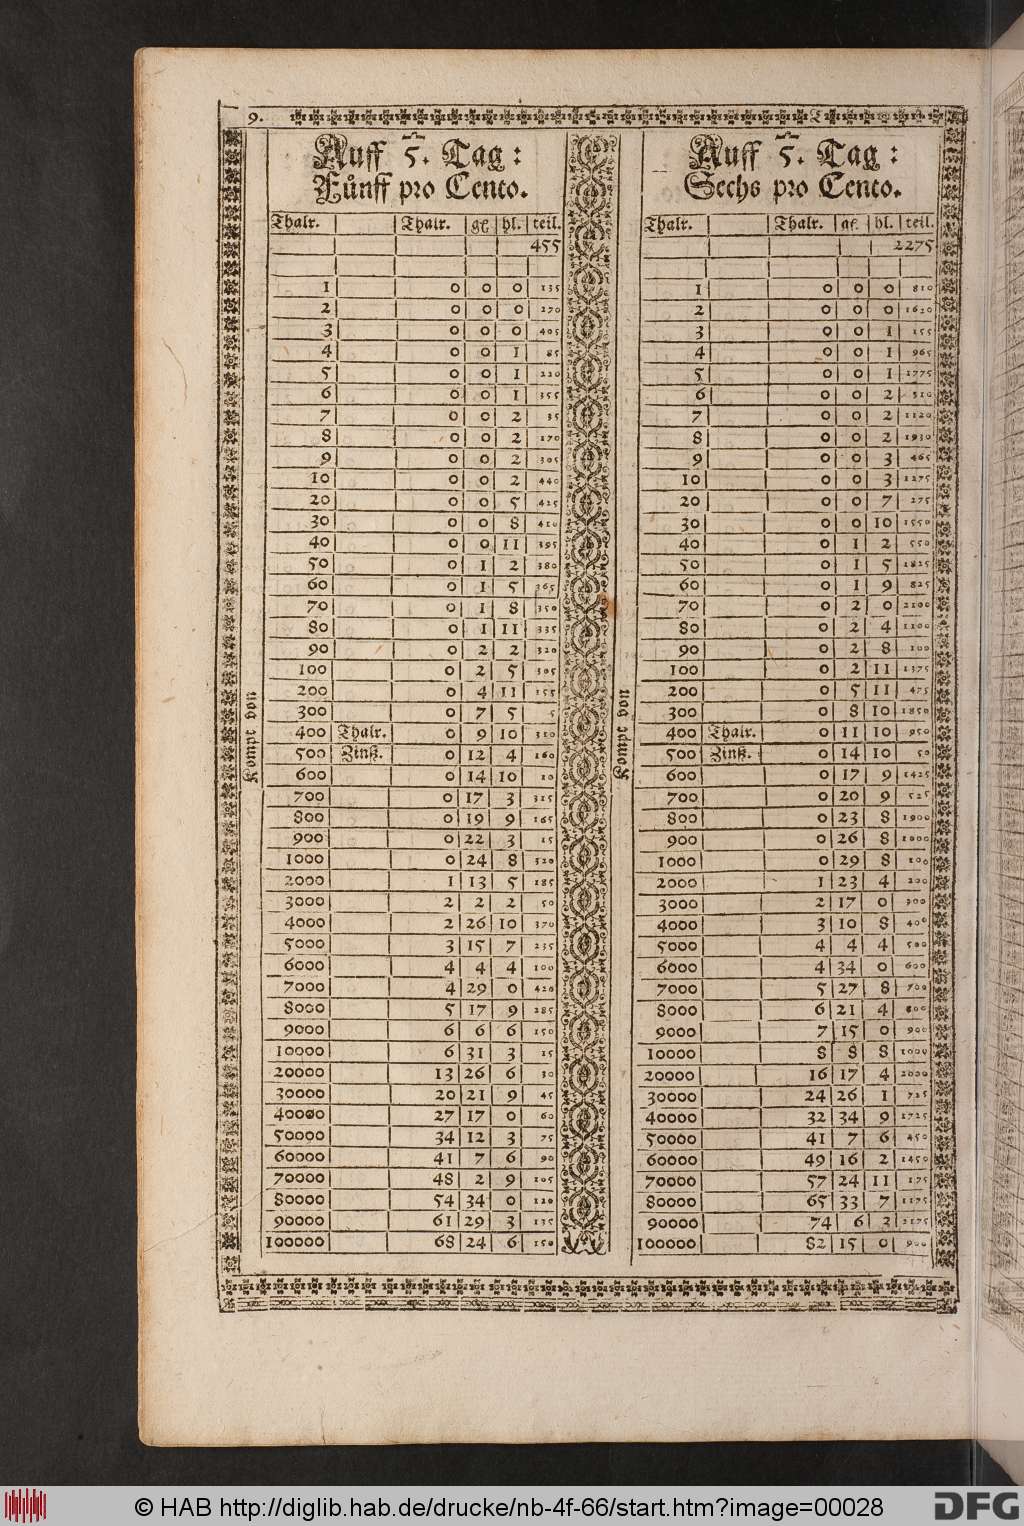 9.
Auff 5. Tag:
Fünff pro Cento.
Thalr. Thalr. gℓ hl. teil.
455
1 0 0 0 135
2 0 0 0 270
3 0 0 0 405
4 0 0 1 85
5 0 0 1 220
6 0 0 1 355
7 0 0 2 35
8 0 0 2 170
9 0 0 2 305
10 0 0 2 440
20 0 0 5 425
30 0 0 8 410
40 0 0 11 395
50 0 1 2 380
60 0 1 5 365
70 0 1 8 350
80 0 1 11 335
90 0 2 2 320
100 0 2 5 305
200 0 4 11 155
300 0 7 5 5
400 Thalr. 0 9 10 310
500 Zinß. 0 12 4 160
600 0 14 10 10
700 0 17 3 315
800 0 19 9 165
900 0 22 3 15
1000 0 24 8 320
2000 1 13 5 185
3000 2 2 2 50
4000 2 26 10 370
5000 3 15 7 235
6000 4 4 4 100
7000 4 29 0 420
8000 5 17 9 285
9000 6 6 6 150
10000 6 31 3 15
20000 13 26 6 30
30000 20 21 9 45
40000 27 17 0 60
50000 34 12 3 75
60000 41 7 6 90
70000 48 2 9 105
80000 54 34 0 120
90000 61 29 3 135
100000 68 24 6 150
Kompt von
Auff 5. Tag:
Sechs pro Cento.
Thalr. Thalr. gℓ. hl. teil.
2275
1 0 0 0 810
2 0 0 0 1620
3 0 0 1 155
4 0 0 1 965
5 0 0 1 1775
6 0 0 2 310
7 0 0 2 1120
8 0 0 2 1930
9 0 0 3 465
10 0 0 3 1275
20 0 0 7 275
30 0 0 10 1550
40 0 1 2 550
50 0 1 5 1825
60 0 1 9 825
70 0 2 0 2100
80 0 2 4 1100
90 0 2 8 100
100 0 2 11 1375
200 0 5 11 475
300 0 8 10 1850
400 Thalr. 0 11 10 950
500 Zinß. 0 14 10 50
600 0 17 9 1425
700 0 20 9 525
800 0 23 8 1900
900 0 26 8 1000
1000 0 29 8 100
2000 1 23 4 200
3000 2 17 0 300
4000 3 10 8 400
5000 4 4 4 500
6000 4 34 0 600
7000 5 27 8 700
8000 6 21 4 800
9000 7 15 0 900
10000 8 8 8 1000
20000 16 17 4 2000
30000 24 26 1 725
40000 32 34 9 1725
50000 41 7 6 450
60000 49 16 2 1450
70000 57 24 11 175
80000 65 33 7 1175
90000 74 6 3 2175
100000 82 15 0 900
Kompt von
© HAB http://diglib.hab.de/drucke/nb-4f-66/start.htm?image=00028
DFG